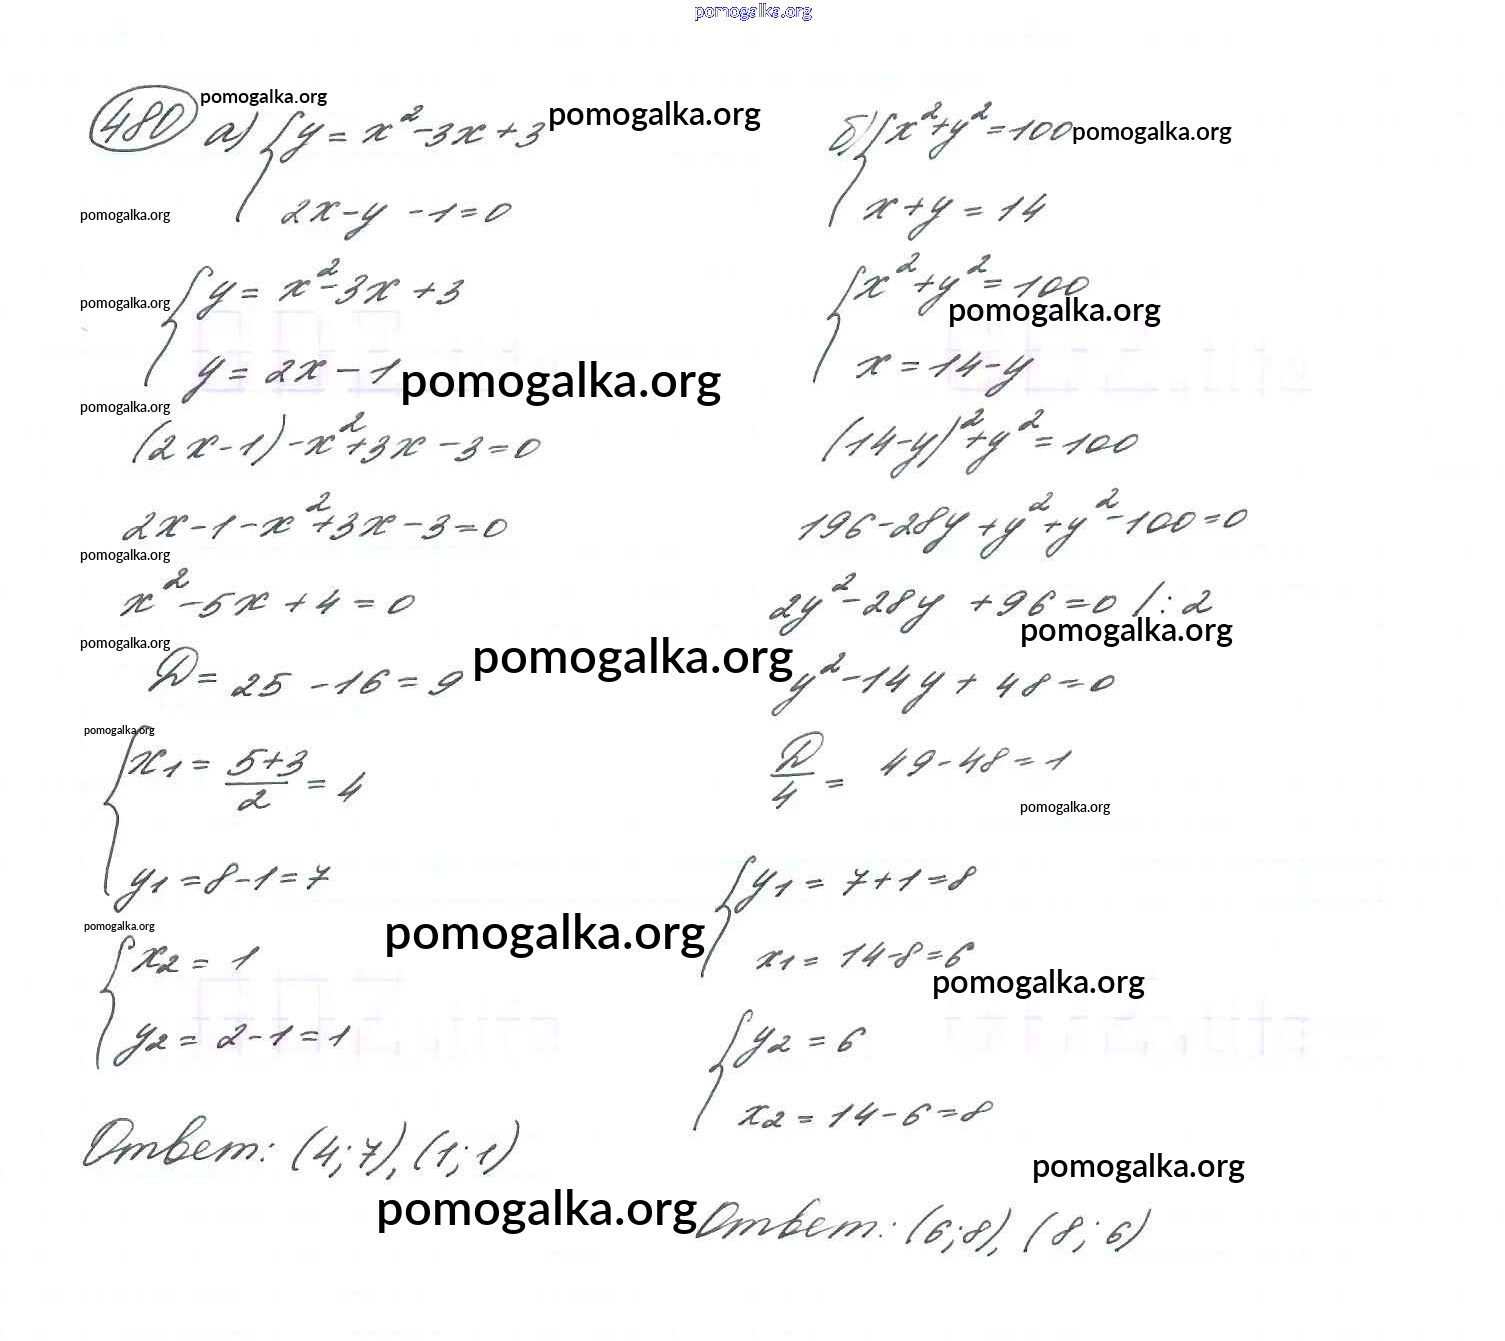 pomogalka.org
480 pomogalka.org
а) { y = x² - 3x + 3 pomogalka.org
2x - y - 1 = 0
pomogalka.org
{ y = x² - 3x + 3
pomogalka.org
y = 2x - 1 pomogalka.org
pomogalka.org
(2x - 1) - x² + 3x - 3 = 0
2x - 1 - x² + 3x - 3 = 0
pomogalka.org
x² - 5x + 4 = 0
pomogalka.org
D = 25 - 16 = 9 pomogalka.org
pomogalka.org
{ x₁ = (5+3)/2 = 4
y₁ = 8 - 1 = 7
pomogalka.org
pomogalka.org
{ x₂ = 1
y₂ = 2 - 1 = 1
Ответ: (4; 7), (1; 1)
pomogalka.org
б) { x² + y² = 100 pomogalka.org
x + y = 14
{ x² + y² = 100
pomogalka.org
x = 14 - y
(14 - y)² + y² = 100
196 - 28y + y² + y² - 100 = 0
2y² - 28y + 96 = 0 /: 2
pomogalka.org
y² - 14y + 48 = 0
D/4 = 49 - 48 = 1
pomogalka.org
{ y₁ = 7 + 1 = 8
x₁ = 14 - 8 = 6
pomogalka.org
{ y₂ = 6
x₂ = 14 - 6 = 8
pomogalka.org
Ответ: (6; 8), (8; 6)